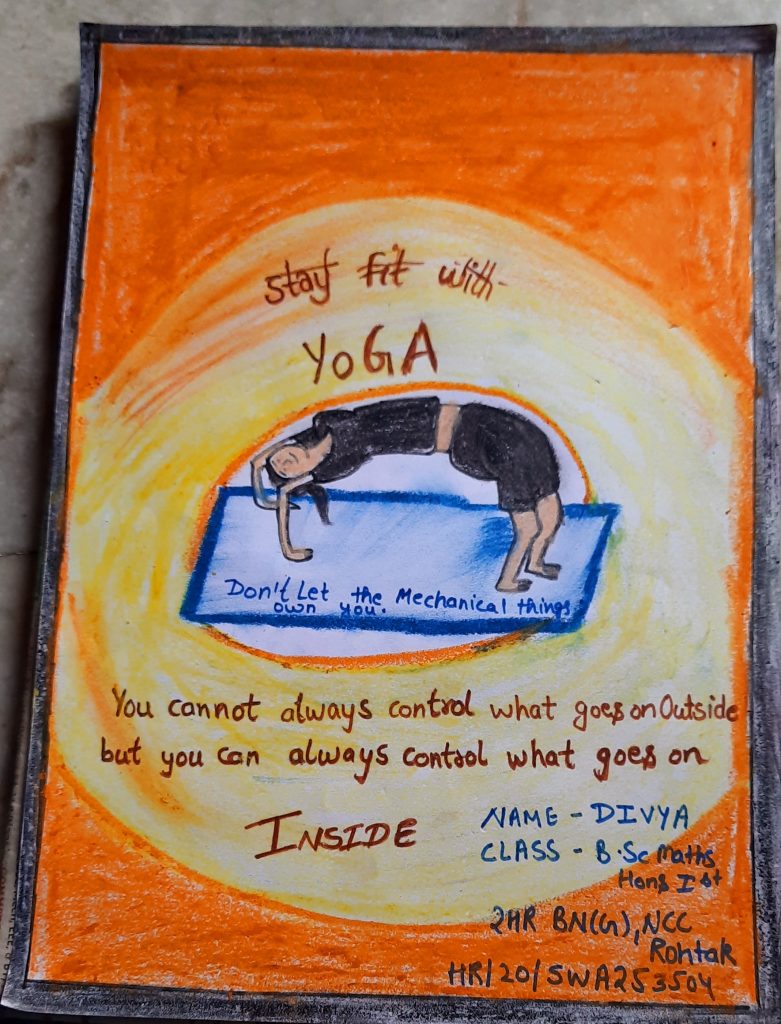 stay fit with
YOGA
Don't Let the Mechanical things
own you.
You cannot always control what goes on Outside
but you can always control what goes on
INSIDE
NAME - DIVYA
CLASS - B.Sc Maths
Hons Ist
2HR BN(G), NCC
Rohtak
HR/20/SWA253504